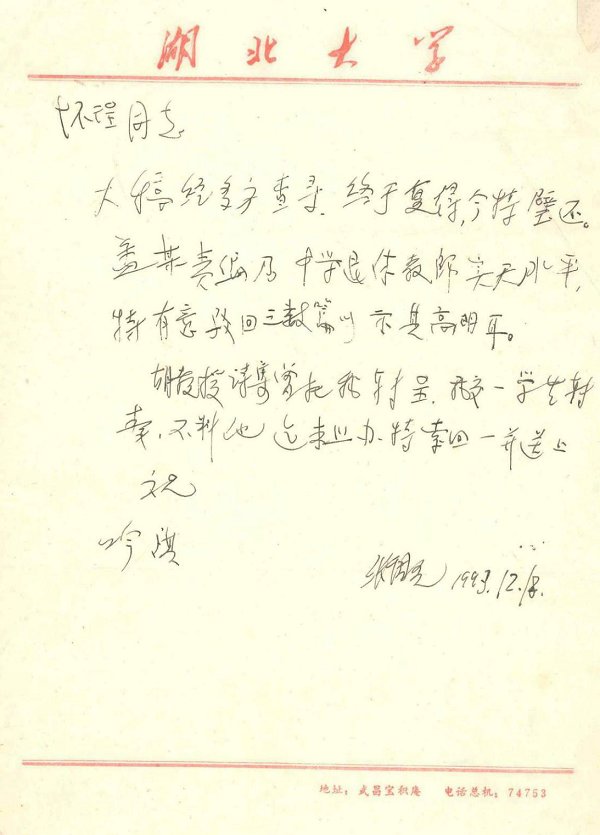 湖北大学
怀瑆同志
大稿经多方查寻,终于复得,今特璧还。
盖某责编乃中学退休教师实无水平,
特有意毁回三数篇以示其高明耳。
胡教授诗寄 曾把 呈,交一学生转
奉,不料他迄未照办,特索回一并送上
祝
吟祺
张国光 1993.12.18.
地址:武昌宝积庵 电话总机:74753